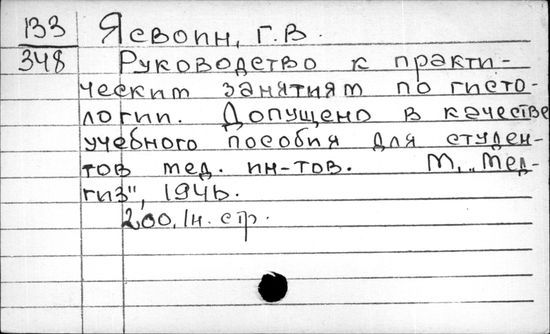 133 Ясвоин, Г.В.
348 Руководство к практи-
ческим занятиям по гисто-
логии. Допущено в качестве
учебного пособия для студен-
тов мед. ин-тов. М, „Мед-
гиз", 1946.
200, 1н. стр.